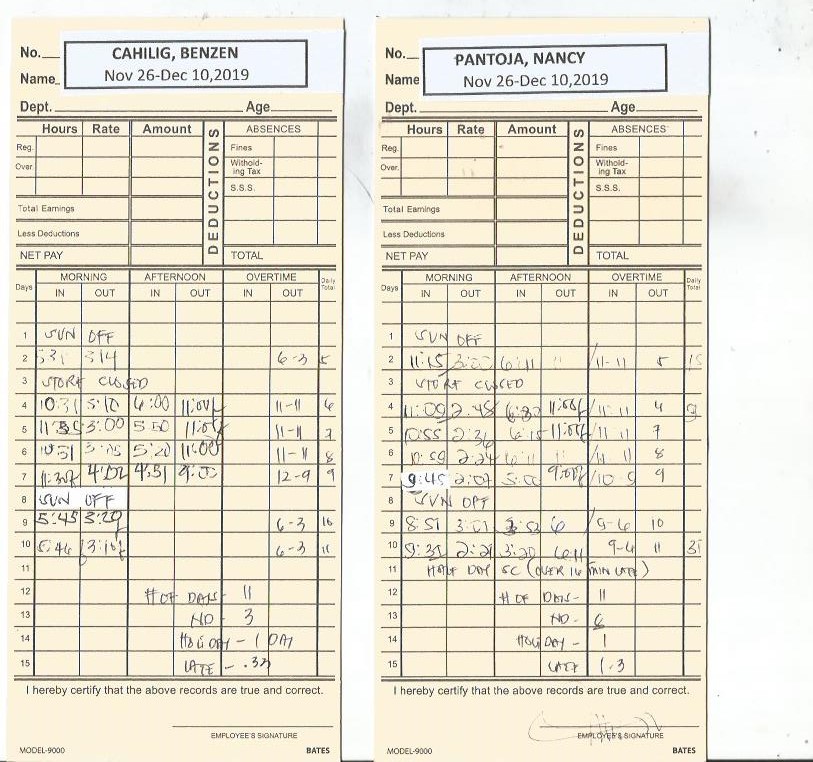 No.
CAHILIG, BENZEN
Name
Nov 26-Dec 10,2019
Dept. Age
Hours Rate Amount DEDUCTIONS ABSENCES
Reg. Fines
Over. Withold-ing Tax
S.S.S.
Total Earnings
Less Deductions
NET PAY TOTAL
Days MORNING AFTERNOON OVERTIME Daily Total
IN OUT IN OUT IN OUT
1 SUN OFF
2 5:31 3:14 6-3 5
3 STORE CLOSED
4 10:31 5:10 6:00 11:00 11-11 6
5 3:00 5:50 11:00 11-11 7
6 10:51 5:20 11:00 11-11 8
7 4:02 4:51 9:00 12-9 9
8 SUN OFF
9 5:45 3:20 6-3 10
10 5:46 3:10 6-3 11
11
12 # OF DAYS - 11
13 ND - 3
14 HOLIDAY - 1 DAY
15 LATE - .32
I hereby certify that the above records are true and correct.
EMPLOYEE'S SIGNATURE
MODEL-9000 BATES
No.
PANTOJA, NANCY
Name
Nov 26-Dec 10,2019
Dept. Age
Hours Rate Amount DEDUCTIONS ABSENCES
Reg. Fines
Over. Withold-ing Tax
S.S.S.
Total Earnings
Less Deductions
NET PAY TOTAL
Days MORNING AFTERNOON OVERTIME Daily Total
IN OUT IN OUT IN OUT
1 SUN OFF
2 11:15 3:00 6:11 11-11 5 15
3 STORE CLOSED
4 11:09 2:45 11:00 11-11 4 9
5 10:55 2:36 6:15 11:00 11-11 7
6 10:59 2:24 6:11 11-11 8
7 9:45 2:07 5:00 9:00 9
8 SUN OFF
9 8:51 3:01 6 9-6 10
10 9:35 2:21 3:20 6:11 9-6 11 35
11 HALF DAY SC (OVER 16 MIN LATE)
12 # OF DAYS - 11
13 ND - 6
14 HOLIDAY - 1
15 LATE 1.3
I hereby certify that the above records are true and correct.
EMPLOYEE'S SIGNATURE
MODEL-9000 BATES